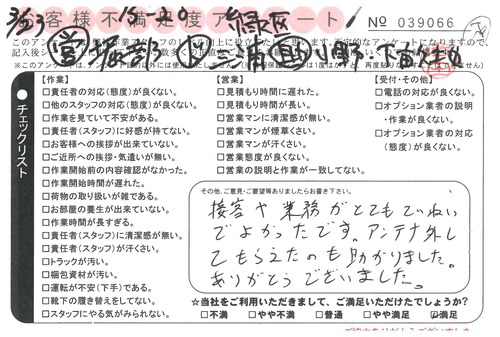 お客様不満足度アンケート
№ 039066
3/23
【作業】
□責任者の対応(態度)が良くない。
□他のスタッフの対応(態度)が良くない。
□作業を見ていて不安がある。
□責任者(スタッフ)に好感が持てない。
□お客様への挨拶が出来ていない。
□ご近所への挨拶・気遣いが無い。
□作業開始前の内容確認がなかった。
□作業開始時間が遅れた。
□荷物の取り扱いが雑である。
□お部屋の養生が出来ていない。
□作業時間が長すぎる。
□責任者(スタッフ)に清潔感が無い。
□責任者(スタッフ)が汗くさい。
□トラックが汚い。
□梱包資材が汚い。
□運転が不安(下手)である。
□靴下の履き替えをしてない。
□スタッフにやる気がみられない。
【営業】
□見積もり時間に遅れた。
□見積もり時間が長い。
□営業マンに清潔感が無い。
□営業マンが煙草くさい。
□営業マンが汗くさい。
□営業態度が良くない。
□営業の説明と作業が一致してない。
【受付・その他】
□電話の対応が良くない。
□オプション業者の説明
・作業が良くない。
□オプション業者の対応
(態度)が良くない。
チェックリスト
その他、ご意見・ご要望等ありましたらお書き下さい。
接客や業務がとてもていねい
でよかったです。アンテナ外し
てもらえたのも助かりました。
ありがとうございました。
☆当社をご利用いただきまして、ご満足いただけたでしょうか?
□不満 □やや不満 □普通 □やや満足 ☑満足